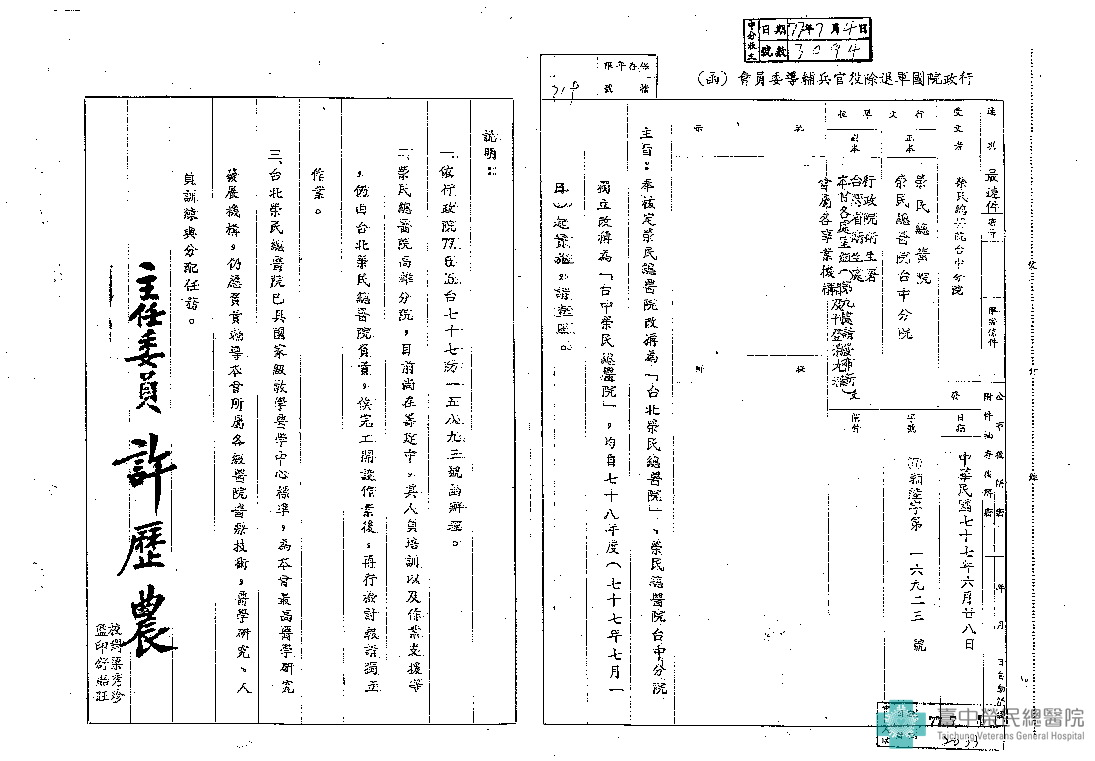 中分收文
日期 77年7月4日
號數 3094
保存年限
檔號
319
行政院國軍退除役官兵輔導委員會（函）
速別
最速件
密等
解密條件
公布後解密
附件抽存後解密
年 月 日自動解密
受文者
榮民總醫院台中分院
行文單位
正本
榮民總醫院
榮民總醫院台中分院
副本
行政院衛生署
台灣省衛生處
本會各處室組
會屬各事業機構
發文
日期
中華民國七十七年六月廿八日
字號
(77)輔陸字第 一六九二三 號
附件
批示
擬辦
主旨：奉核定榮民總醫院改稱為「台北榮民總醫院」、榮民總醫院台中分院
獨立改稱為「台中榮民總醫院」，均自七十八年度（七十七年七月一
日）起實施。請查照。
說明：
一、依行政院77.6.5.台七十七防一五八九三號函辦理。
二、榮民總醫院高雄分院，目前尚在籌建中。其人員培訓以及作業支援等
，仍由台北榮民總醫院負責，俟完工開設作業後，再行檢討報請獨立
作業。
三、台北榮民總醫院已具國家級教學醫學中心標準，為本會最高醫學研究
發展機構，仍應負責輔導本會所屬各級醫院醫療技術，醫學研究、人
員訓練與分配任務。
主任委員 許歷農
校對梁秀珍
監印舒貽註
臺中榮民總醫院
Taichung Veterans General Hospital